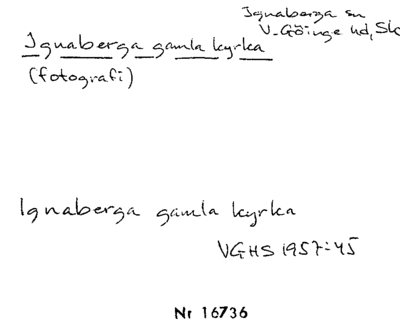 Ignaberga sn
V-Göinge hd, Sk
Ignaberga gamla kyrka
(fotografi)
Ignaberga gamla kyrka
VGHS 1957:45
Nr 16736